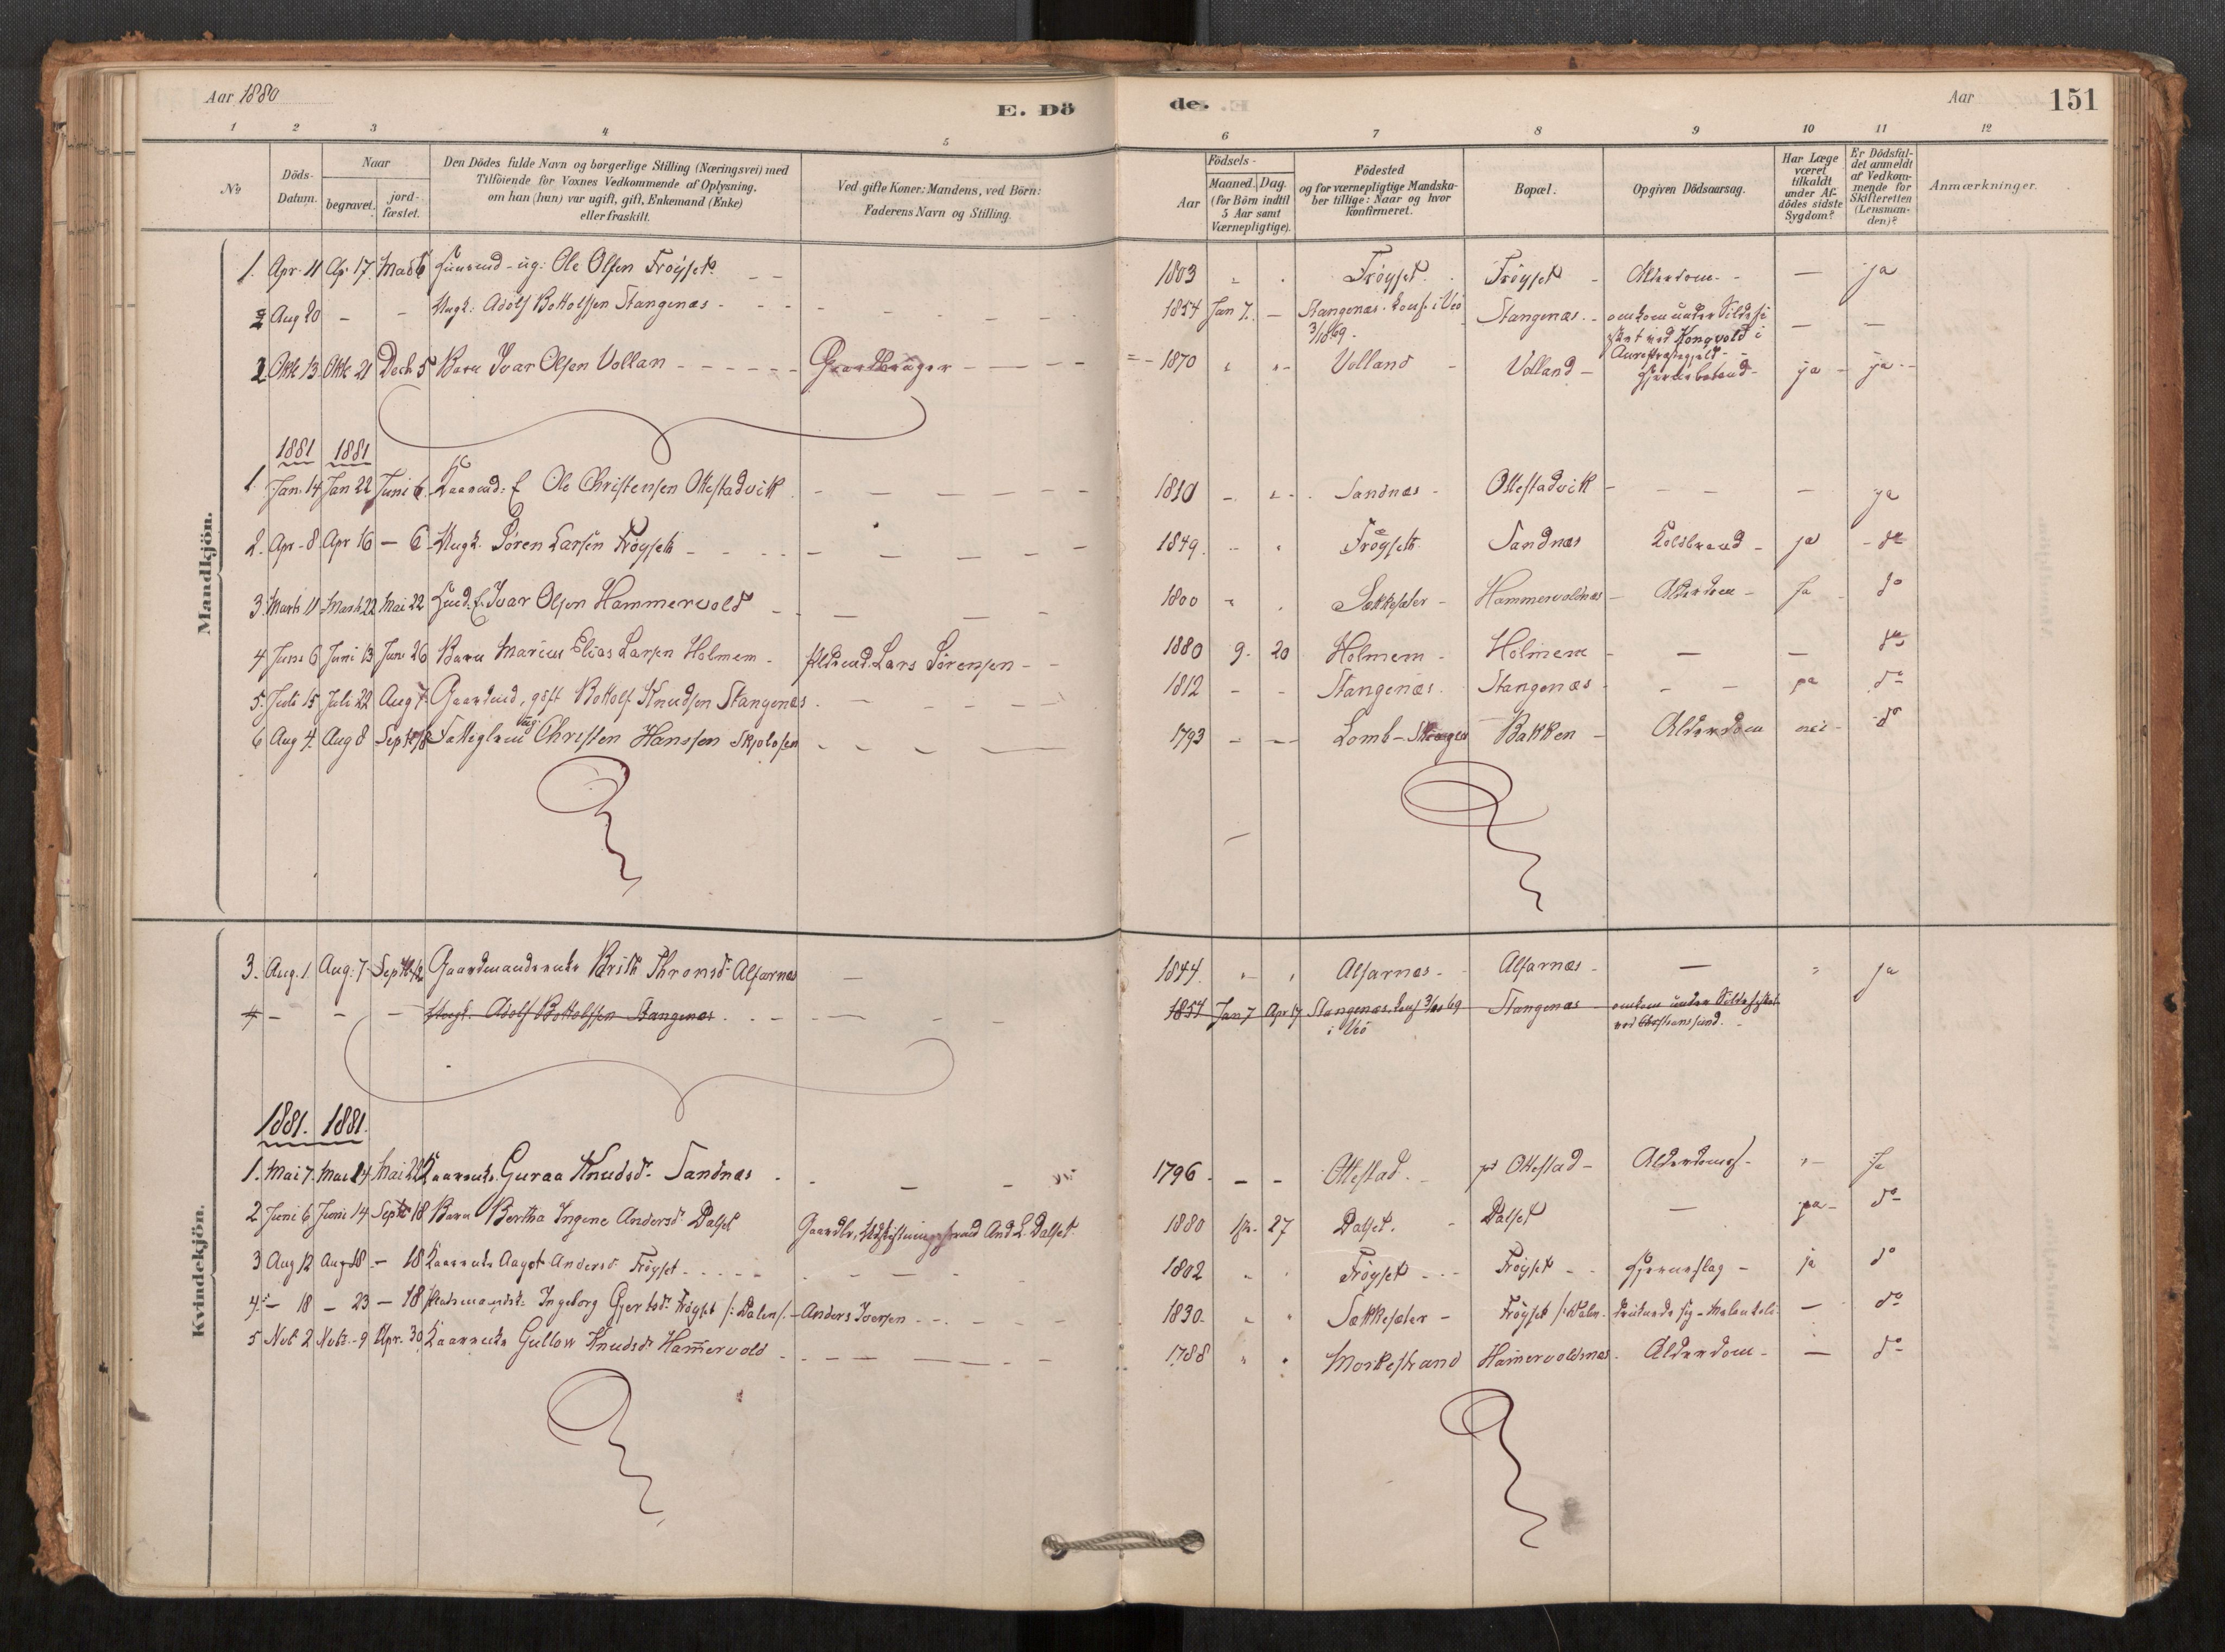 Aar 1880
E. Dö
de.
Aar
151
1 2 3 4 5 6 7 8 9 10 11 12
No
Döds-
Datum.
Naar
begravet.
jord-
fæstet.
Den Dödes fulde Navn og borgerlige Stilling (Næringsvei) med
Tilföiende for Voxnes Vedkommende af Oplysning.
om han (hun) var ugift, gift, Enkemand (Enke)
eller fraskilt.
Ved gifte Koner: Mandens, ved Börn:
Faderens Navn og Stilling.
Födsels-
Aar
Maaned. Dag.
(for Börn indtil
5 Aar samt
Værnepligtige).
Födested
og for værnepligtige Mandska-
ber tillige: Naar og hvor
konfirmeret.
Bopæl.
Opgiven Dödsaarsag.
Har Læge
været
tilkaldt
under Af-
dödes sidste
Sygdom?
Er Dödsfal-
det anmeldt
af Vedkom-
mende for
Skifteretten
(Lensman-
den)?
Anmærkninger.
Mandkjön.
1. Apr. 11 Ap. 17. ug: Ole Olsen Fröyset 1803 Fröyset Fröyset Alderdom - — ja
2 Aug 20 - - Ungk. Adolf Bottolfsen Stangenæs - 1854 Jan 7. — Stangenæs. konf. i Veö Stangenæs. omkom under Sildefi
3/10 69. skeri ved Kongvold i — —
2 Okt 13 Okt 21 Decb 5 Barn Ivar Olsen Vollan Gaardbruger 1870 Volland Volland ja ja
1881 1881
1. Jan. 14 Jan 22 Juni 6. Ole Christensen Ottestadvik 1810 Sandnæs Ottestadvik - — ja
2. Apr - 8 Apr 16 — 6 Ungk. Sören Larsen Fröyseth 1849. Fröyseth Sandnæs Koldbrand ja do
3. Marts 11 Marts 22 Mai 22 Ivar Olsen Hammervold 1800 Sækkesæter Hammervoldnæs Alderdom Ja do
4 Juni 6 Juni 13 Juni 26 Barn Marius Elias Larsen Holmem Lars Sörensen 1880 9. 20 Holmem Holmem — — do
5. Juli 15 Juli 22 Aug 7. Gaardmd, gift Bottolf Knudsen Stangenæs 1812 Stangenæs. Stangenæs ja do
6 Aug 4. Aug 8 Christen Hanssen Skjolosen 1793 Lomb - Bakken Alderdom nei do
Kvindekjön.
3. Aug. 1 Aug: 7. Gaardmandsenke Brith Thronsd. Alfarnæs 1844. Alfarnæs - Alfarnæs — ja
4 - - - Ungk. Adolf Bottolfsen Stangenæs 1854 Jan 7 Apr 17 Stangenæs. konf 3/10 69 Stangenæs omkom under Sildefisket
i Veö ved Christianssund.
1881. 1881.
1. Mai 7. Mai 14 Mai 22 Kaarenke. Guraa Knudsd. Sandnæs 1796 - - - Ottestad. Ottestad - Alderdoms Ja
2 Juni 6 Juni 14 Septr 18 Barn Bertha Ingene Andersd. Dalset And. L. Dalset. 1880 27 Dalset. Dalset — ja do
3 Aug 12 Aug 18 - 18 Kaarenke Aagot Andersd. Fröyset 1802 Fröyset Fröyset Hjerneslag - ja do
4. - 18 - 23 - 18 Ingeborg Gjertsd. Fröyset /: Dalen/. Anders Iversen 1830. Sækkesæter - Fröyset /: Dalen. druknede sig - Melankoli — do
5 Nob 2 Nobr. 9 Apr. 30 Kaarenke Gullow Knudsd. Hammervold 1788 Morkestrand Hammervoldsnæs Alderdom - — do